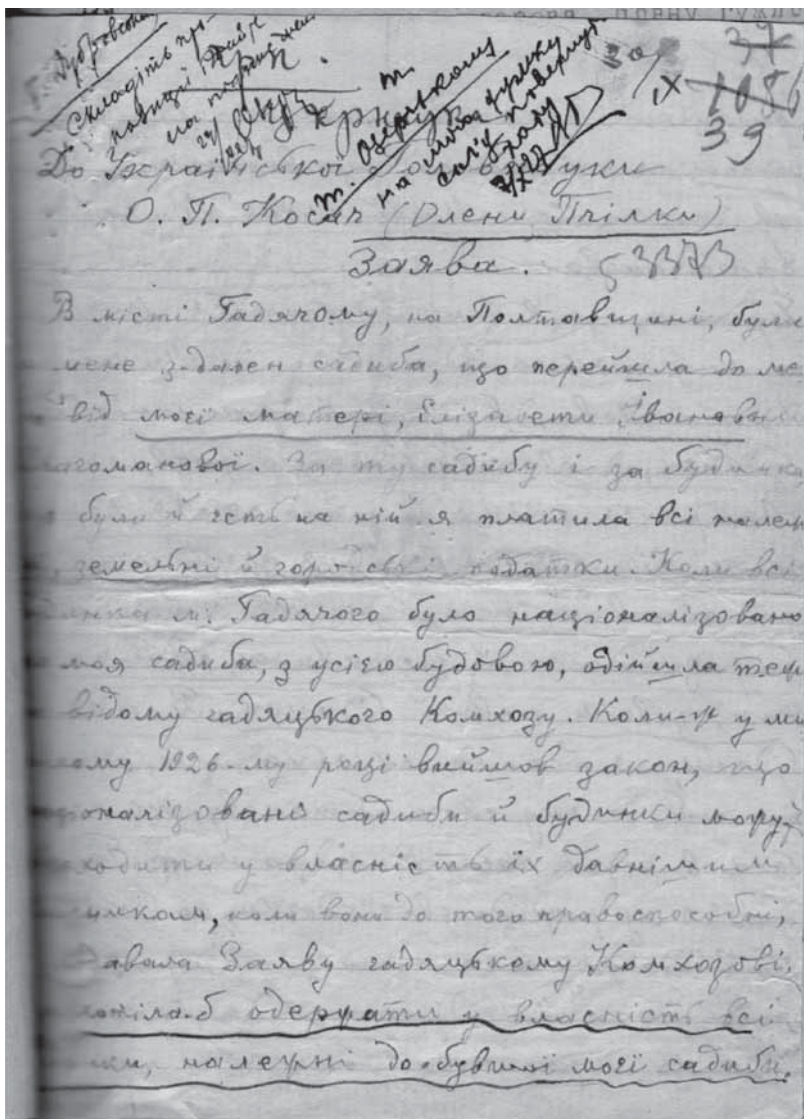 Дубровською
Складіть про-
позиції
на
Укрнаука
т. Озерському
на мою думку
слід повернути
хату
7/IX 27
30/IX
37
1086
39
До Української Головнауки
О. П. Косач (Олени Пчілки)
Заява.
3373
В місті Гадячому, на Полтавщині, була
мене з-давен садиба, що перейшла до ме
від моєї матері, Єлізавети Івановни
рагоманової. За ту садибу і за будинки
були й єсть на ній я платила всі належ
земельні й городські податки. Коли всі
динка м. Гадячого було націоналізовано
моя садиба, з усією будовою, одійшла теж
відому гадяцького Комхозу. Коли-ж у ми
лому 1926-му році вийшов закон, що
ціоналізовані садиби й будинки можуть
ходити у власність їх давнішим
никам, коли вони до того правоспособні,
давала Заяву гадяцькому Комхозові,
хотіла-б одержати у власність всі
ки, належні до бувшої моєї садиби.